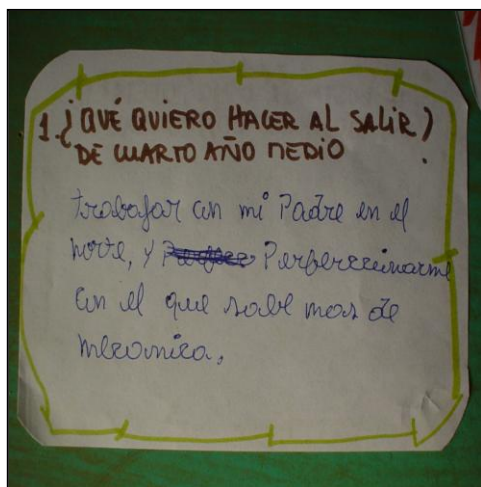 1. ¿QUÉ QUIERO HACER AL SALIR?
DE CUARTO AÑO MEDIO
trabajar con mi Padre en el
norte, y Perfereccinarme
con el que sabe mas de
mecanica.